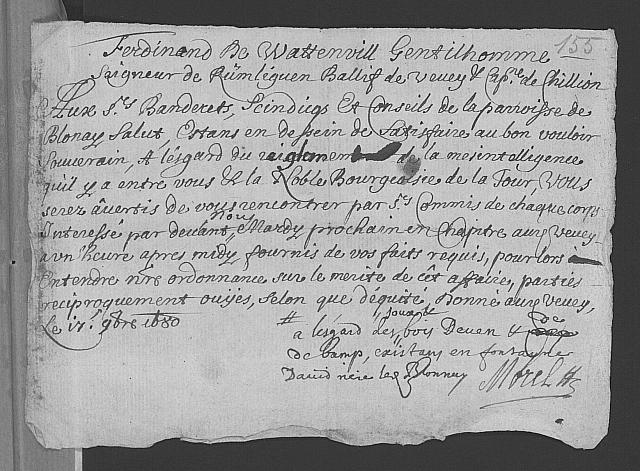 155
Ferdinand De Wattenvill Gentilhomme
Seigneur de Rümliguen Ballif de Vevey & Cap.ne de Chillion
Aux s.rs Banderets, Scindicqs Et Conseils de la parroisse de
Blonay Salut, Estans en dessein de Satisfaire au bon vouloir
Souverain, A lésgard du reiglement de la mesintelligence
quil y a entre vous & la Noble Bourgeoisie de la Tour, Vous
serez âvertis de vous rencontrer par s.rs Commis de chaque corps
Interessé par devant nous Mardy prochain en Chaptre aux Vevey
a vn heure apres midy fournis de vos faits requis, pour lors
Entendre nre ordonnance sur le merite de cêt affaire, parties
reciproquement ouyes, selon que dequité, Donné aux Vevey,
Le 17.e 9bre 1680
a lésgard des bois Devan & de
de Camp, existans en
David
Morel